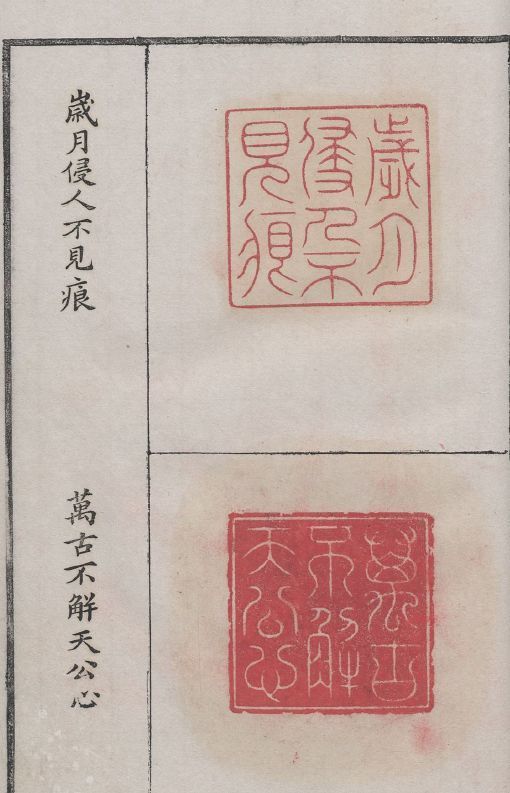 歲月侵人不見痕
歲月
侵人不
見痕
萬古不解天公心
萬古
不解
天公心